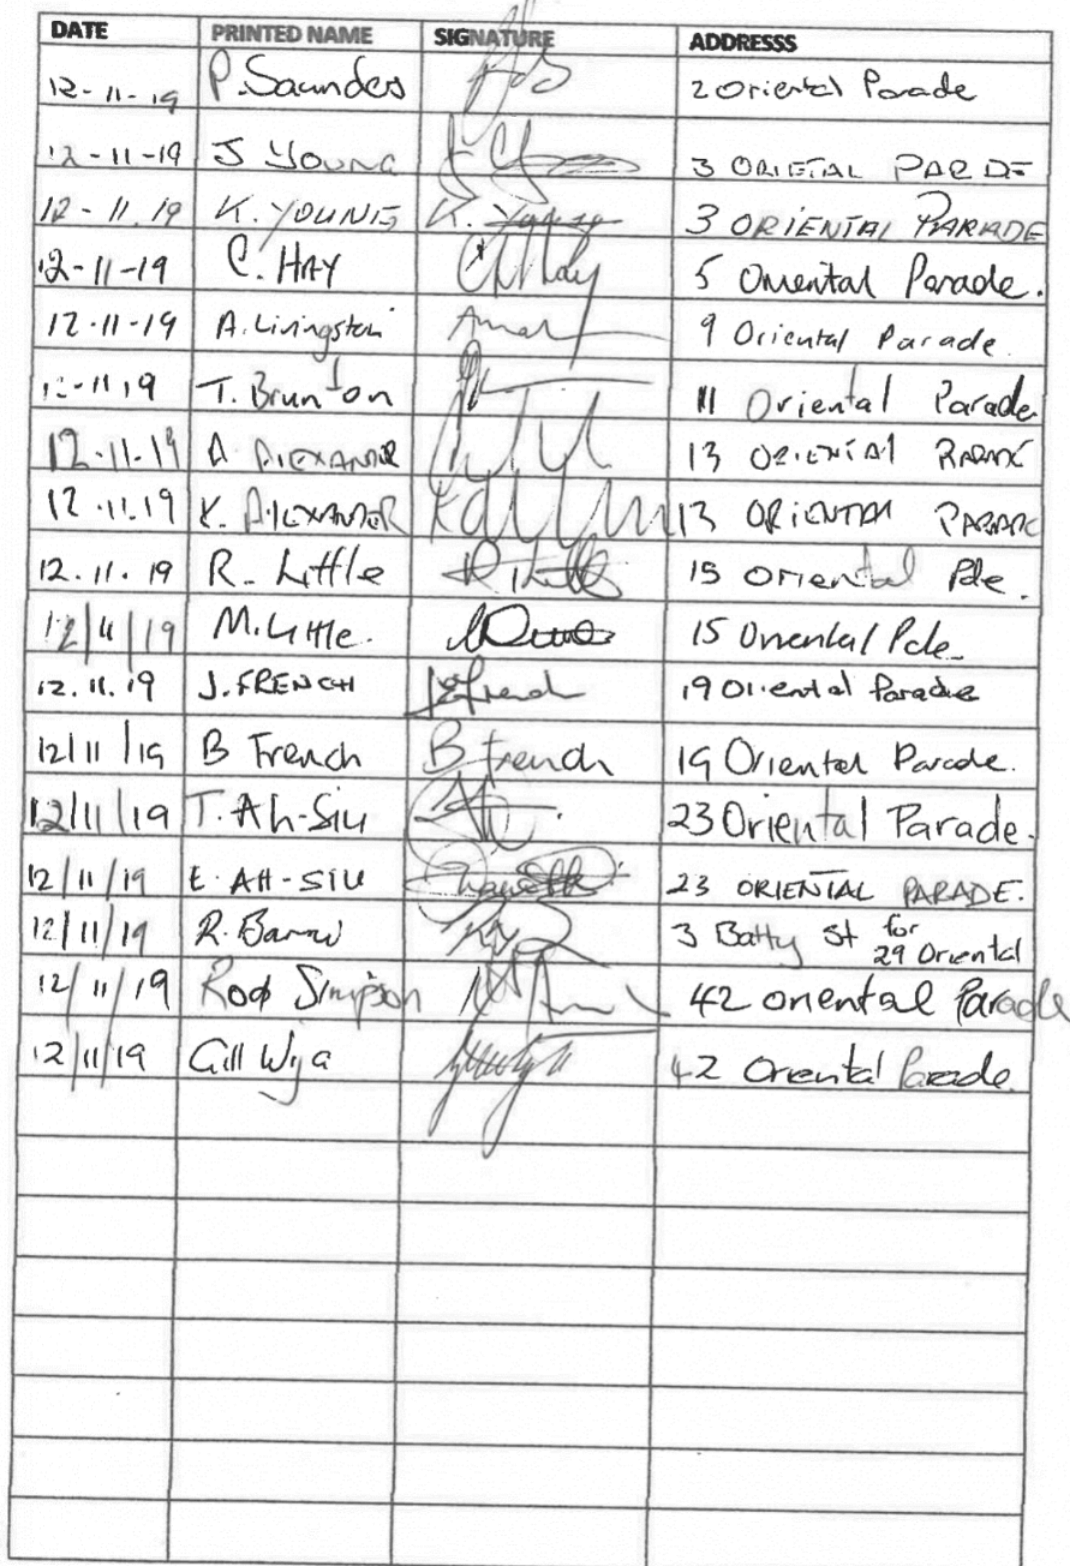 DATE PRINTED NAME SIGNATURE ADDRESSS
12-11-19 P. Saunders 2 Oriental Parade
12-11-19 J Young 3 ORIETAL PARDE
12-11.19 K. YOUNG K. Young 3 ORIENTAL PARADE
12-11-19 C. HAY 5 Oriental Parade.
12.11-19 A. Livingston 9 Oriental Parade.
12-11 19 T. Brunton 11 Oriental Parade
12.11.19 A ALEXANDER 13 ORIENTAL PARADE
12.11.19 K. ALEXANDER 13 ORIENTAL PARADE
12.11.19 R. Little 15 Oriental Pde.
12/11/19 M. Little. 15 Oriental Pde.
12.11.19 J. FRENCH French 19 Oriental Parade
12/11/19 B French B French 19 Oriental Parade.
12/11/19 T. Ah-Siu 23 Oriental Parade.
12/11/19 E. AH-SIU 23 ORIENTAL PARADE.
12/11/19 R. 3 Batty St for
29 Oriental
12/11/19 Rod Simpson 42 Oriental Parade
12/11/19 Gill 42 Oriental Parade.